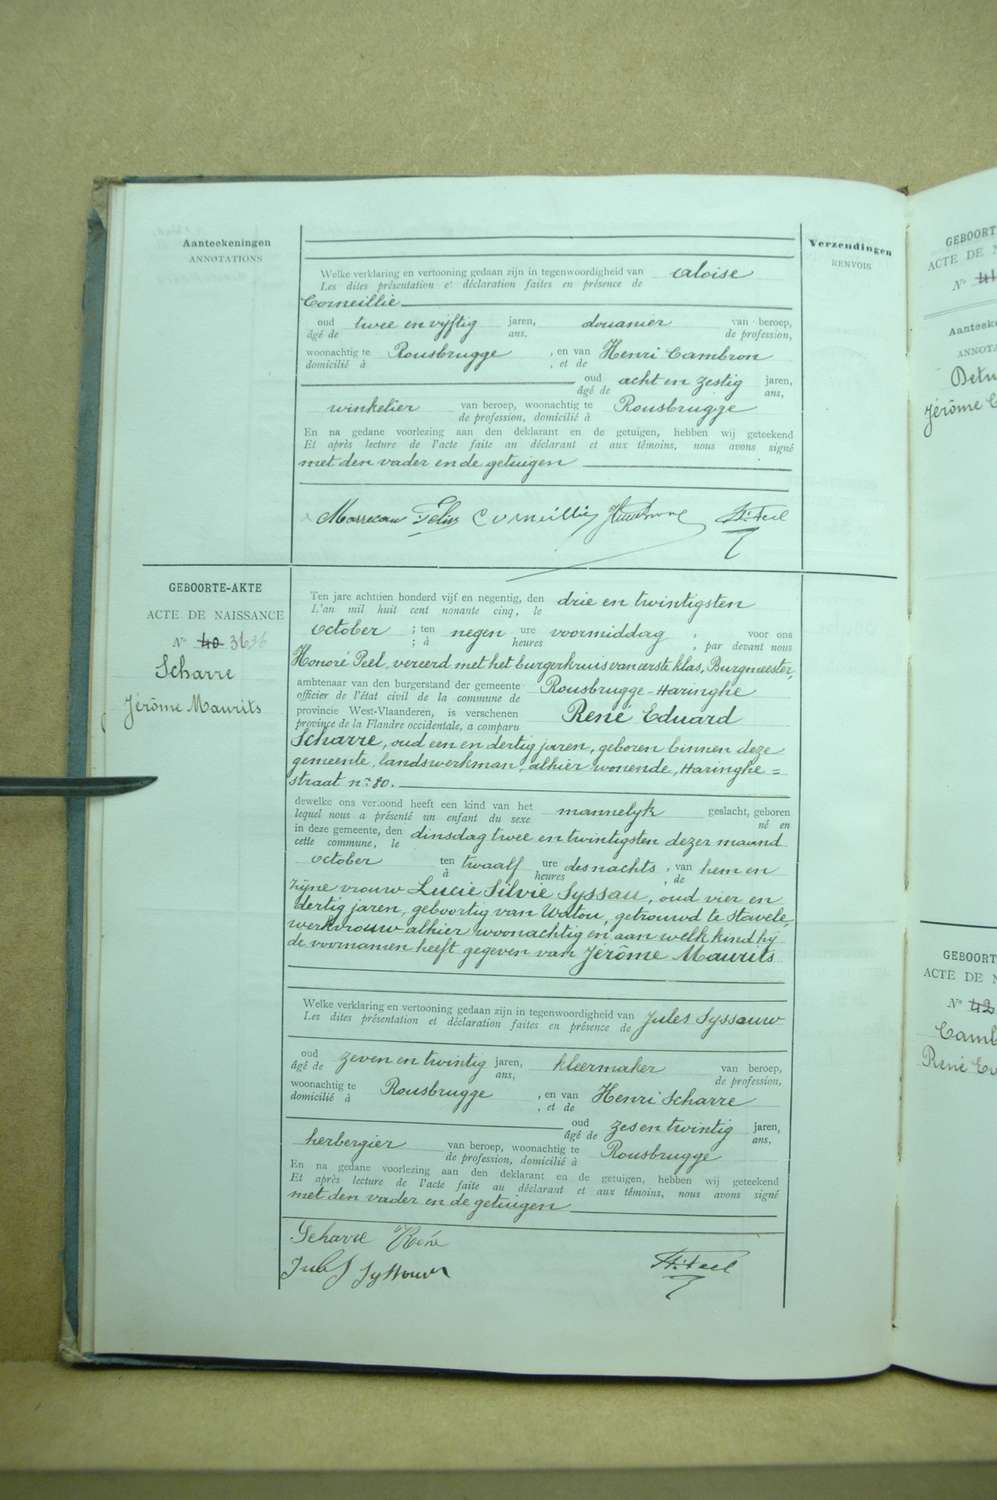 Aanteekeningen
ANNOTATIONS
Verzendingen
RENVOIS
Welke verklaring en vertooning gedaan zijn in tegenwoordigheid van Aloïse
Les dites présentation et déclaration faites en présence de
Corneillie
oud twee en vijftig jaren, douanier van beroep,
âgé de ans, de profession,
woonachtig te Rousbrugge , en van Henri Cambron
domicilié à , et de
oud acht en zestig jaren,
âgé de ans,
winkelier van beroep, woonachtig te Rousbrugge
de profession, domicilié à
En na gedane voorlezing aan den deklarant en de getuigen, hebben wij geteekend
Et après lecture de l'acte faite au déclarant et aux témoins, nous avons signé
met den vader en de getuigen
Felix Corneillie H. Peel
GEBOORTE-AKTE
ACTE DE NAISSANCE
N° 40 36 36
Scharre
Jérôme Maurits
Ten jare achttien honderd vijf en negentig, den drie en twintigsten
L'an mil huit cent nonante cinq, le
October ; ten negen ure voormiddag , voor ons
; à heures , par devant nous
Honoré Peel, vereerd met het burgerkruis van eerste klas, Burgmeester,
ambtenaar van den burgerstand der gemeente Rousbrugge-Haringhe
officier de l'état civil de la commune de
provincie West-Vlaanderen, is verschenen René Eduard
province de la Flandre occidentale, a comparu
Scharre, oud een en dertig jaren, geboren binnen deze
gemeente, landswerkman, alhier wonende, Haringhe=
straat nr. 80.
dewelke ons vertoond heeft een kind van het mannelyk geslacht, geboren
lequel nous a présenté un enfant du sexe né en
in deze gemeente, den dinsdag twee en twintigsten dezer maand
cette commune, le
October ten twaalf ure des nachts , van hem en
à heures , de
zijne vrouw Lucie Silvie Syssau, oud vier en
dertig jaren, geboortig van Watou, getrouwd te Stavele,
werkvrouw alhier woonachtig en aan welk kind hij
de voornamen heeft gegeven van Jérôme Maurits
Welke verklaring en vertooning gedaan zijn in tegenwoordigheid van Jules Syssauw
Les dites présentation et déclaration faites en présence de
oud zeven en twintig jaren, kleermaker van beroep,
âgé de ans, de profession,
woonachtig te Rousbrugge , en van Henri Scharre
domicilié à , et de
oud zes en twintig jaren,
âgé de ans,
herbergier van beroep, woonachtig te Rousbrugge
de profession, domicilié à
En na gedane voorlezing aan den deklarant en de getuigen, hebben wij geteekend
Et après lecture de l'acte faite au déclarant et aux témoins, nous avons signé
met den vader en de getuigen
Scharre René
Jules Syssouw H. Peel
GEBOORT
ACTE DE N
N° 41
Aanteek
ANNOTA
Jérôme C
GEBOORT
ACTE DE N
N° 42
Camb
René